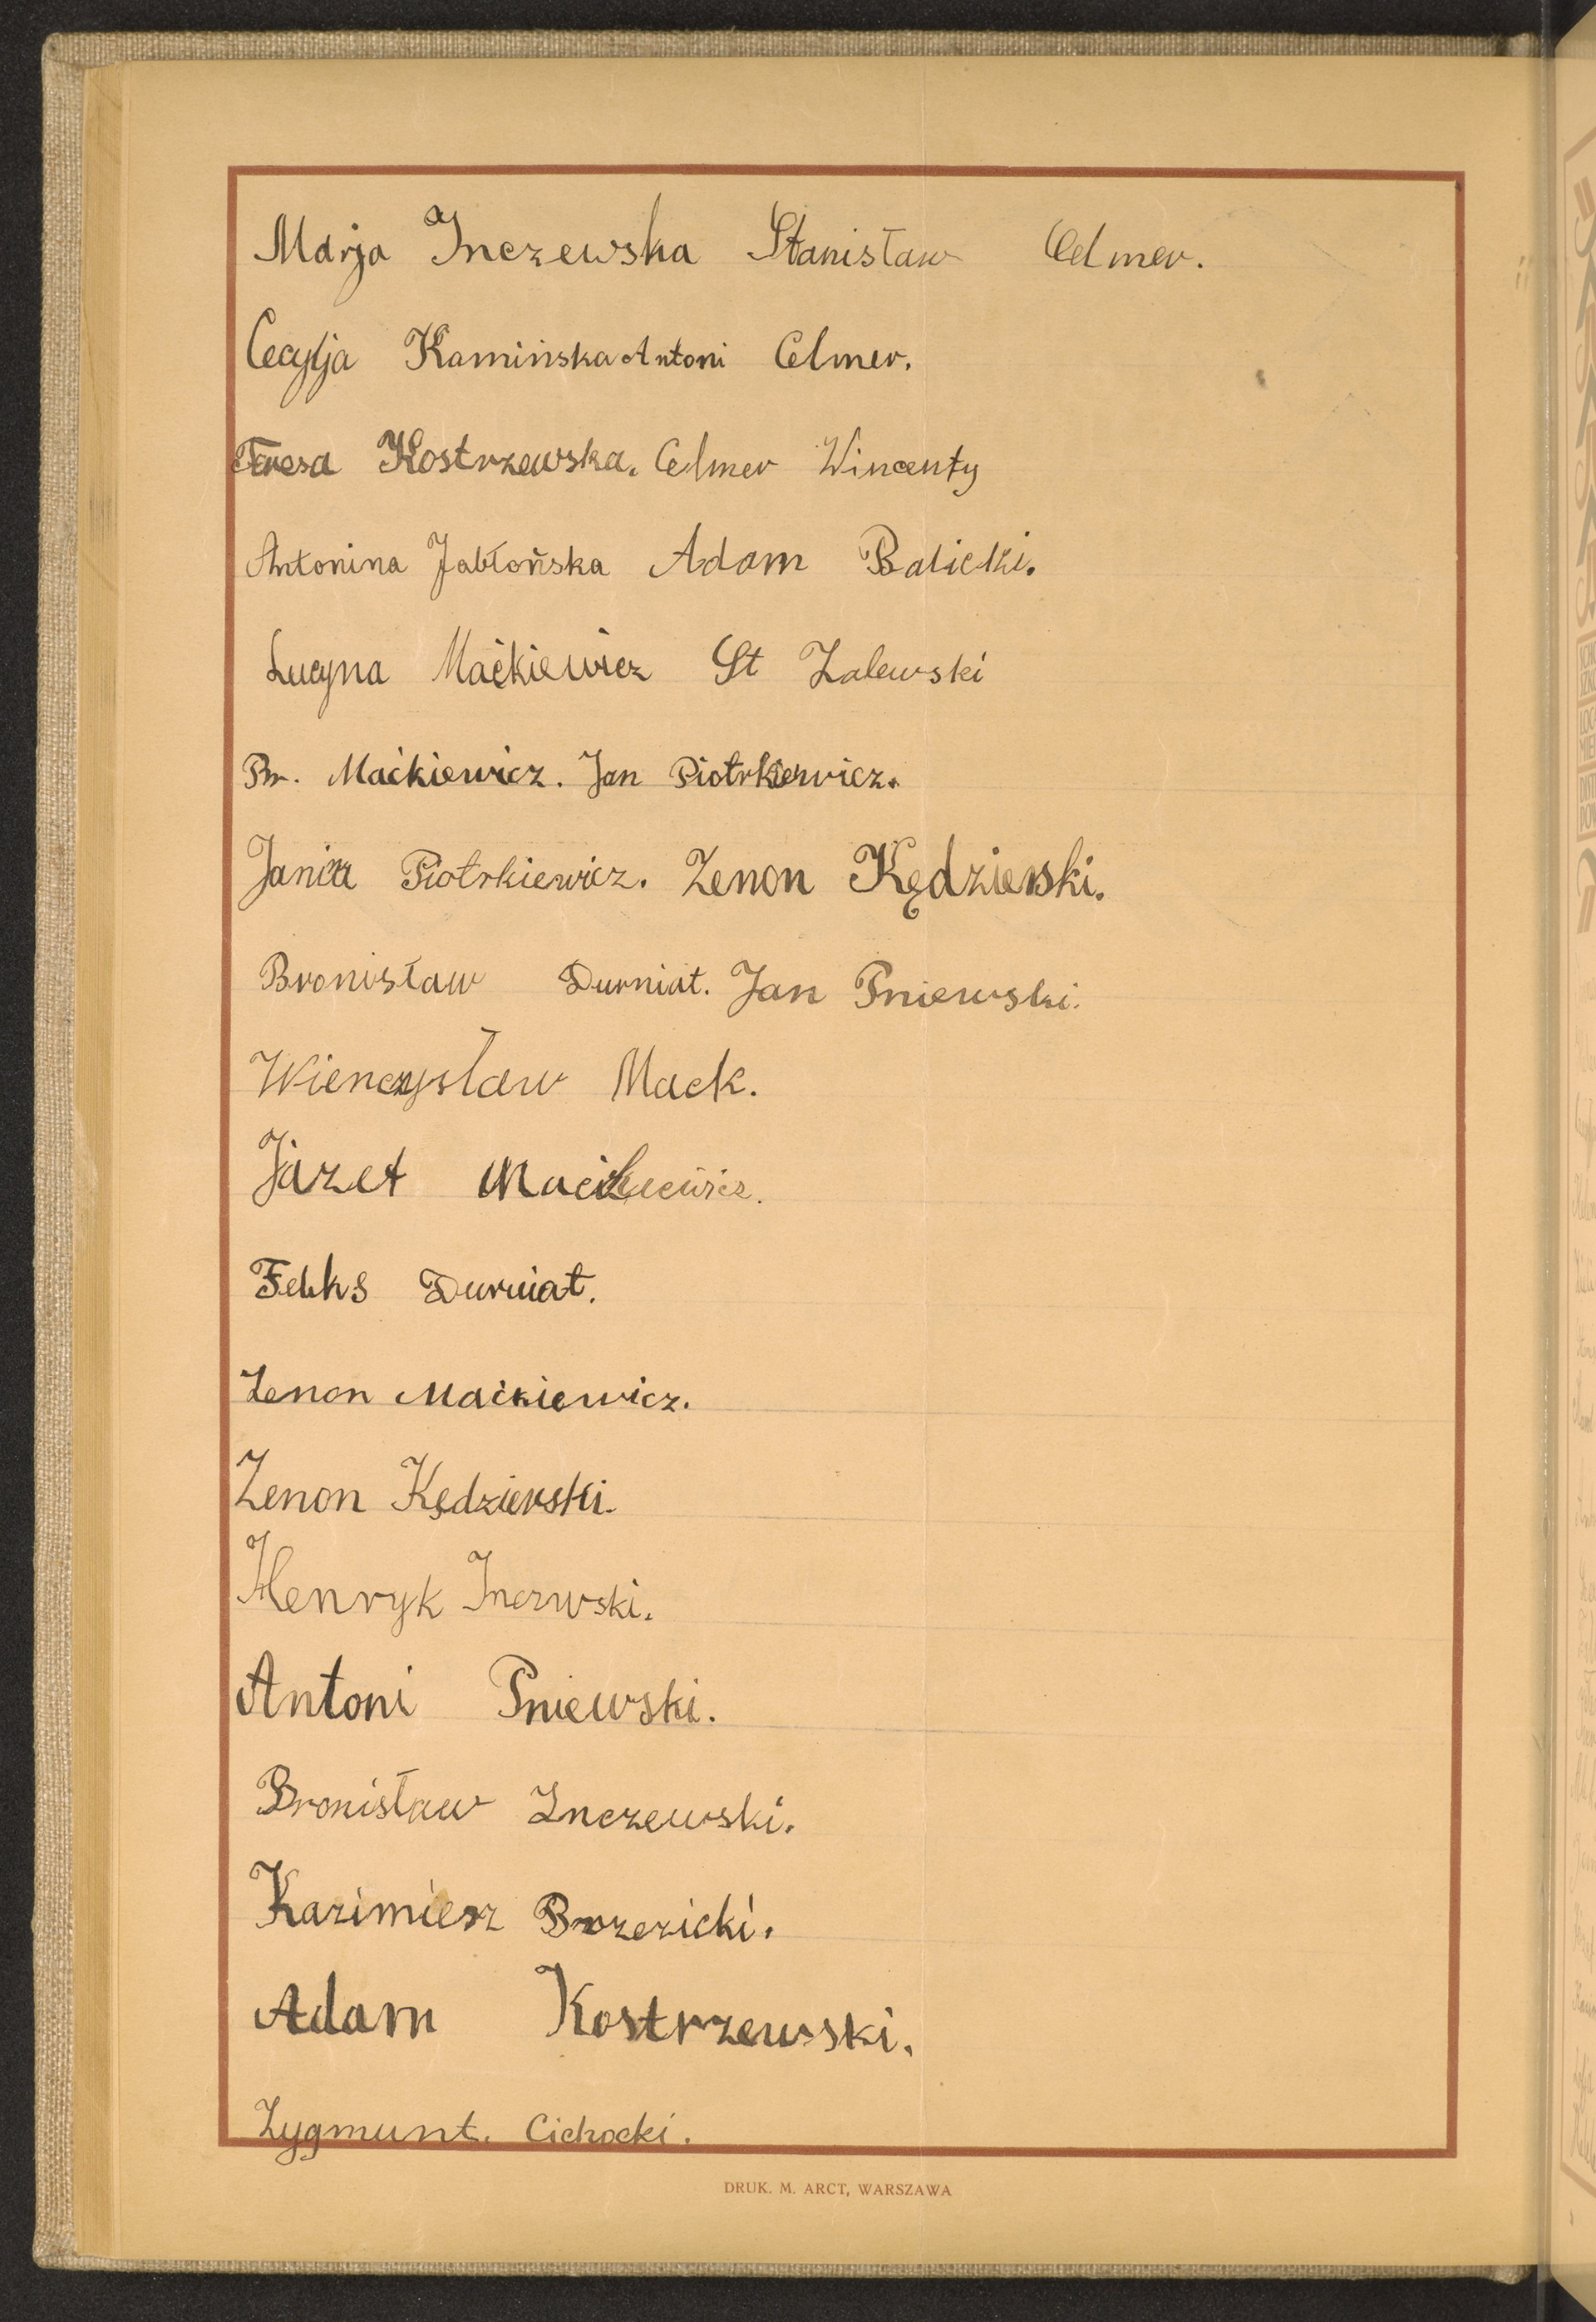 Marja Inczewska Stanisław Celmer.
Cecylja Kamińska Antoni Celmer.
Teresa Kostrzewska. Celmer Wincenty
Antonina Jabłońska Adam Balicki.
Lucyna Maćkiewicz St Zalewski
Br. Maćkiewicz. Jan Piotrkiewicz.
Piotrkiewicz. Zenon Kędzierski.
Bronisław Durniat. Jan Pniewski.
Wienczysław Mack.
Józef Maćkiewicz.
Feliks Durniat.
Zenon Maćkiewicz.
Zenon Kędzierski.
Henryk Inczwski.
Antoni Pniewski.
Bronisław Inczewski.
Kazimierz Brzezicki.
Adam Kostrzewski.
Zygmunt. Cichocki.
DRUK. M. ARCT, WARSZAWA